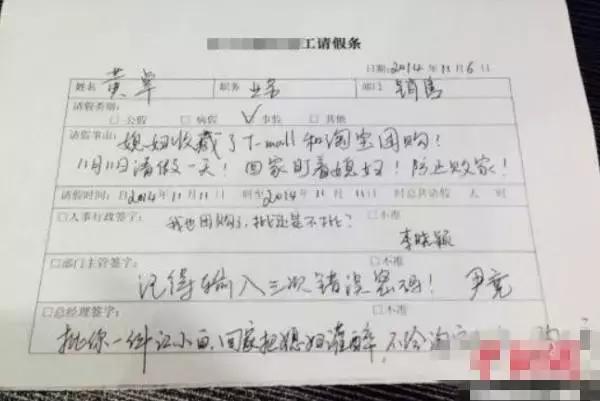 工请假条
日期:2014年11月6日
姓名 黄军 职务 业务 部门 销售
请假类别:
□公假 □病假 √事假 □其他
请假事由: 媳妇收藏了T-mall和淘宝团购?
11月11日请假一天!回家盯着媳妇!防止败家!
请假时间:自2014年11月11日 时至2014年11月11日 时总共请假 天 时
□人事行政签字: □不准
我也团购了,批还是不批? 李晓颖
□部门主管签字: □不准
记得输入三次错误密码! 尹亮
□总经理签字: □不准
批你一件江小白,回家把媳妇灌醉,不给淘宝